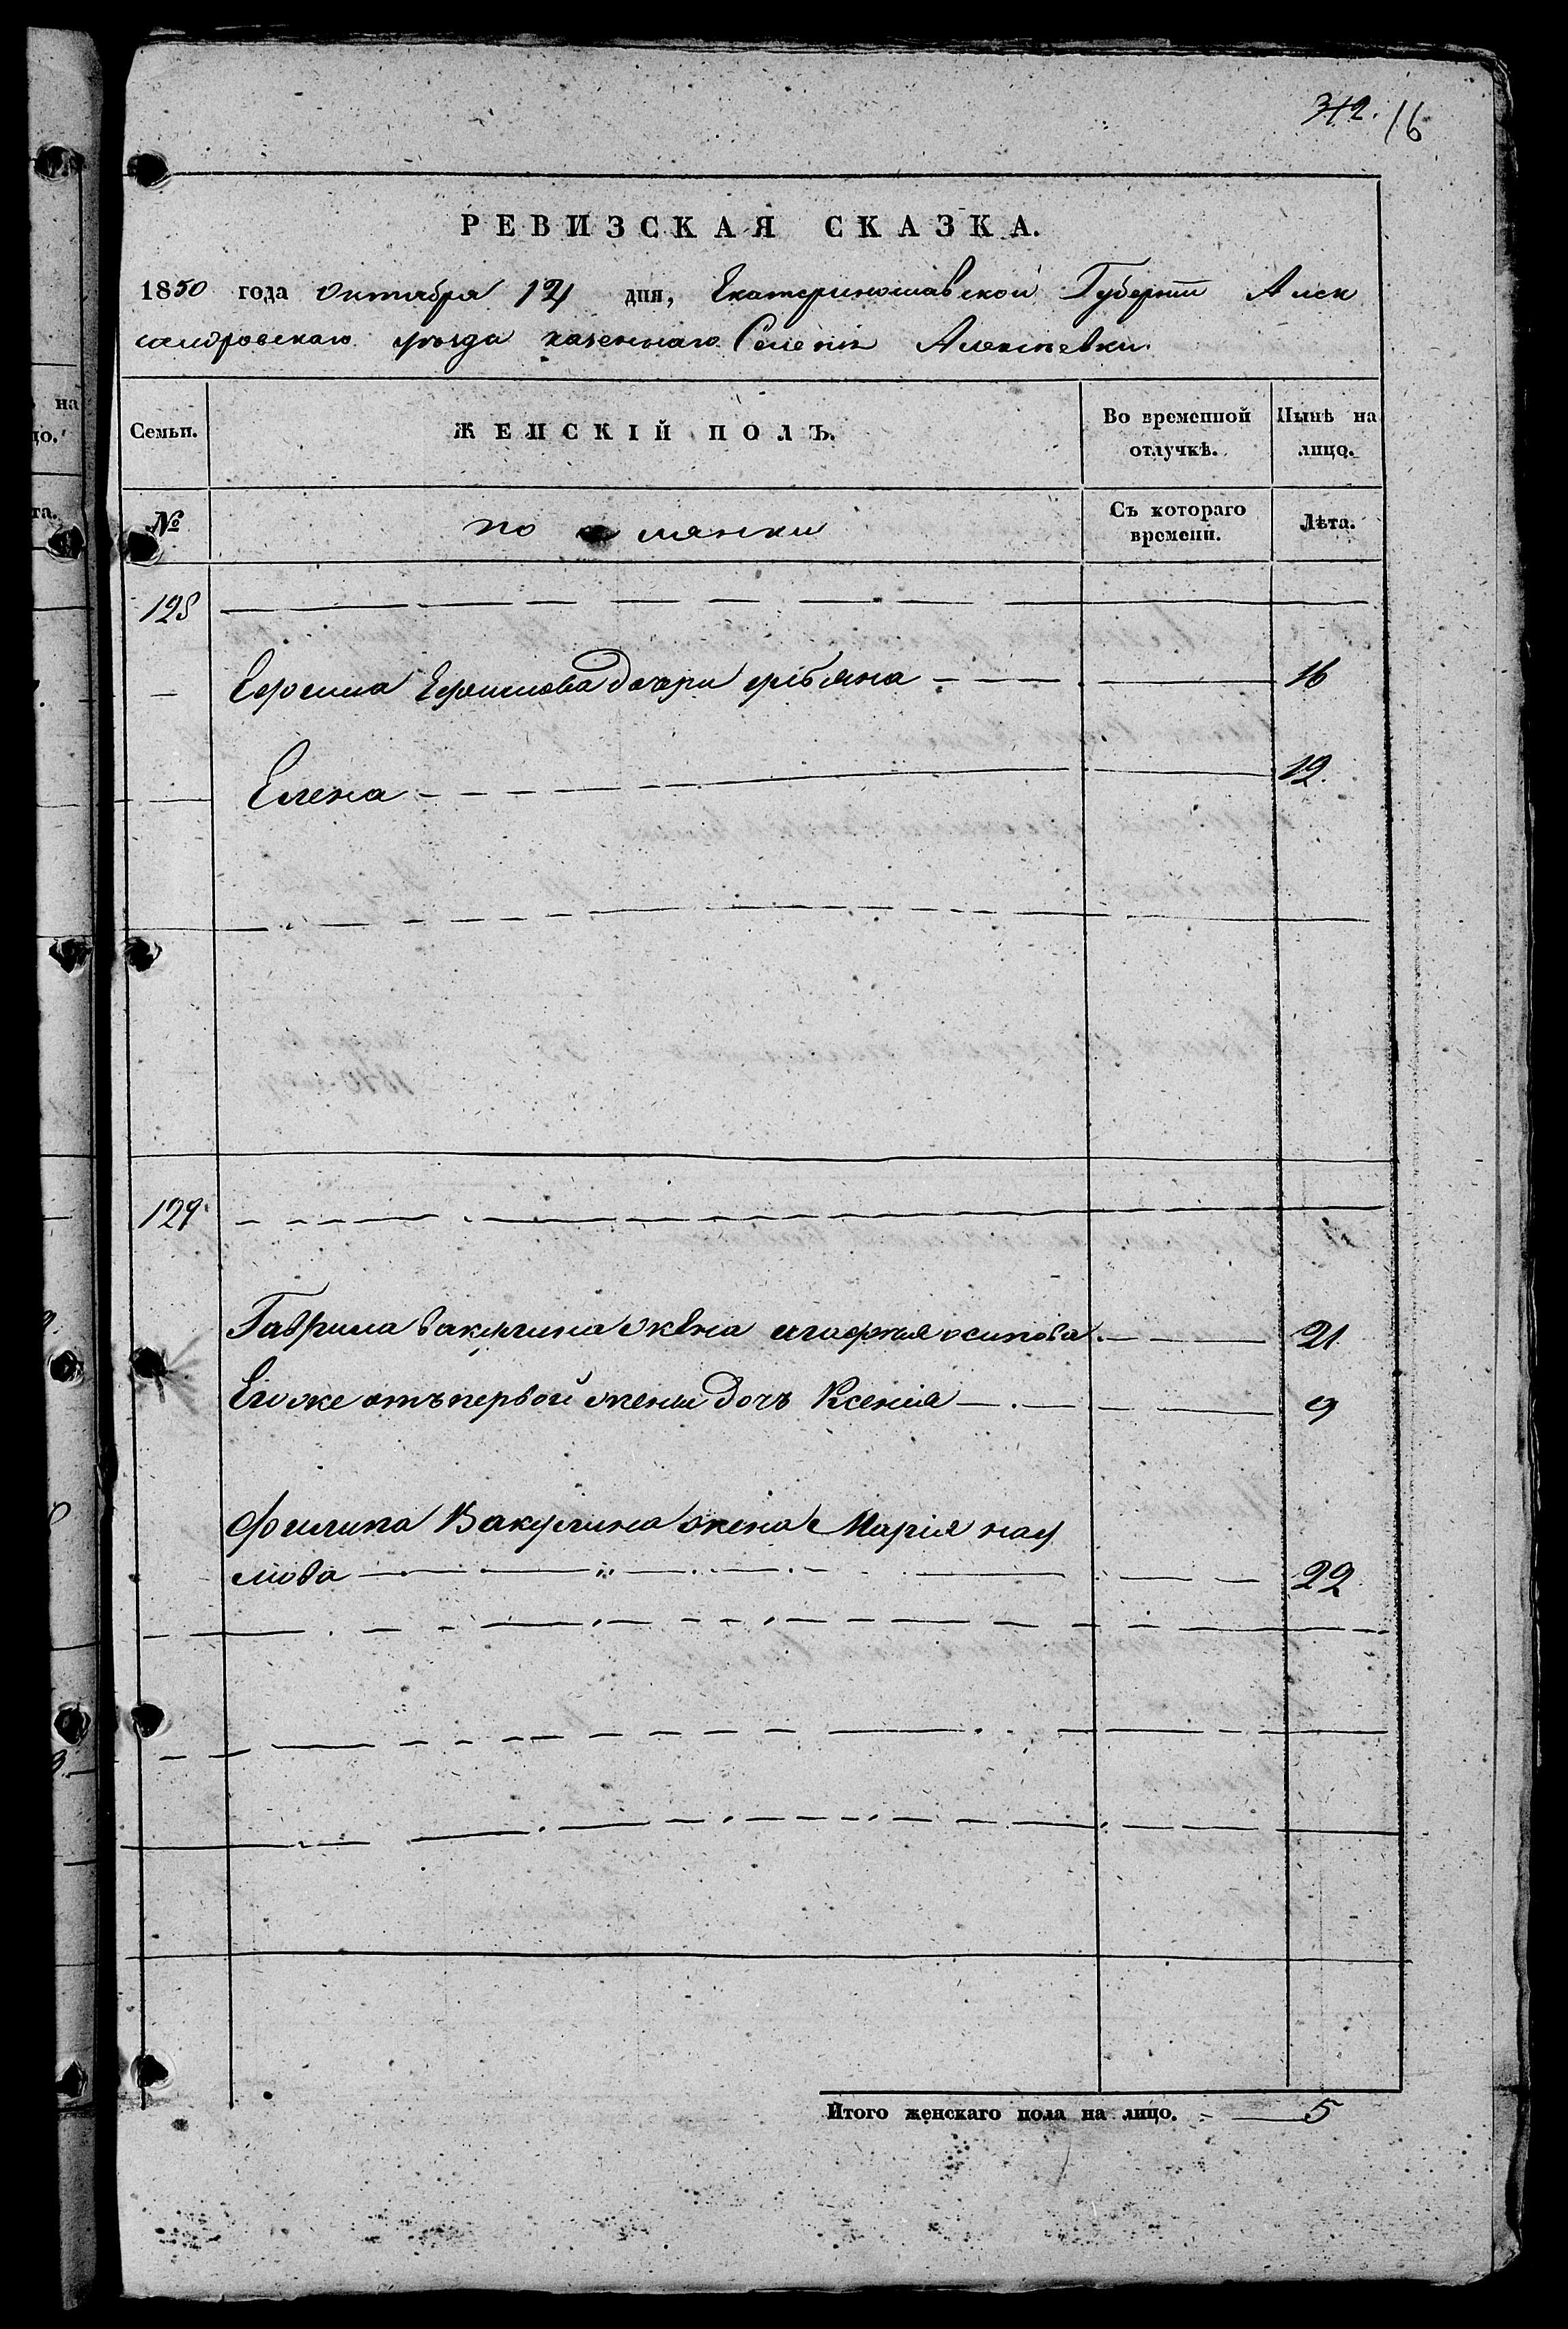 312. 16
РЕВИЗСКАЯ СКАЗКА.
1850 года октября 12 дня, Екатеринославской Губерніи Алек
сандровскаго уѣзда казеннаго Селенія Алексѣевки.
Семьи. ЖЕНСКІЙ ПОЛЪ. Во временной отлучкѣ. Нынѣ на лицо.
№ по мянки Съ котораго времени. Лѣта.
128
Ефима Ефимова дочери 16
Елена 12.
129
Гаврила вакулина жена агафия осипова 21
Егоже отъ первой жены дочь Ксения 9
Филипа Вакулина жена Марія нау
мова 22
Итого женскаго пола на лицо. 5
на
та.